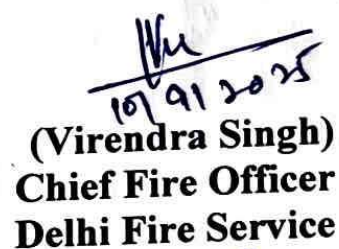 10/9/2025
(Virendra Singh)
Chief Fire Officer
Delhi Fire Service